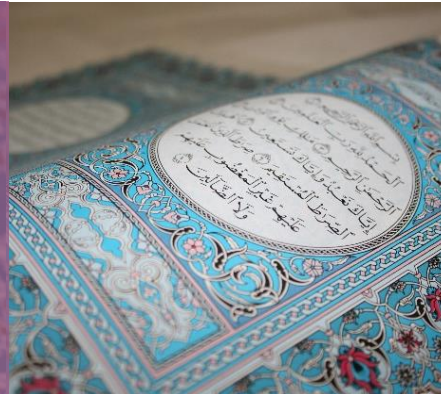 بِسْمِ اللَّهِ الرَّحْمَٰنِ الرَّحِيمِ
الْحَمْدُ لِلَّهِ رَبِّ الْعَٰلَمِينَ
الرَّحْمَٰنِ الرَّحِيمِ
إِيَّاكَ نَعْبُدُ وَإِيَّاكَ نَسْتَعِينُ
الصِّرَٰطَ الْمُسْتَقِيمَ صِرَٰطَ الَّذِينَ
عَلَيْهِمْ غَيْرِ الْمَغْضُوبِ عَلَيْهِمْ
وَلَا الضَّالِّينَ